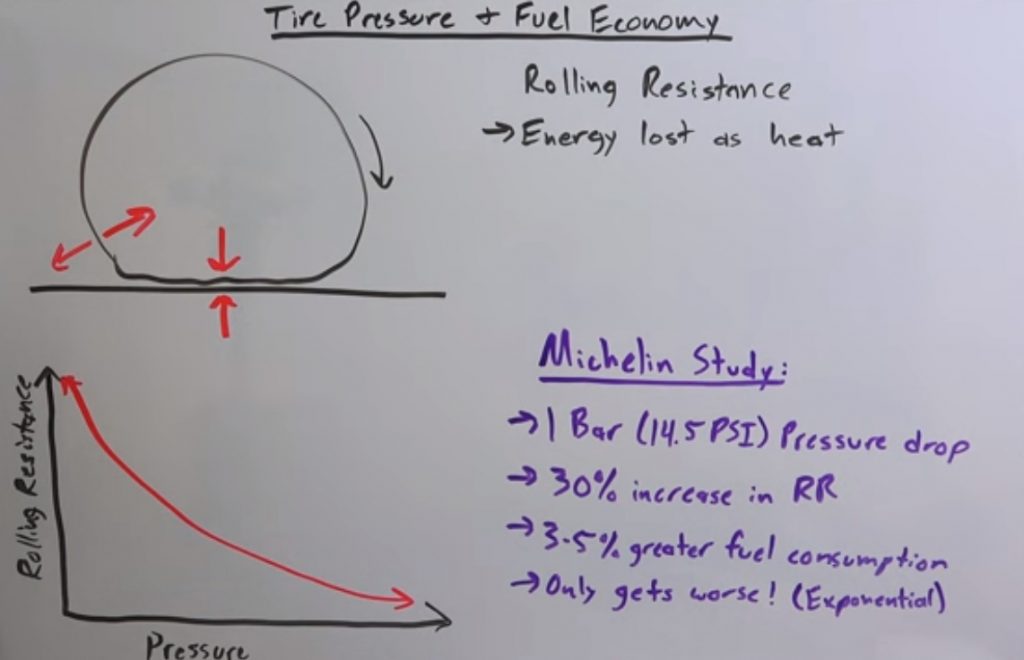 Tire Pressure + Fuel Economy
Rolling Resistance
→ Energy lost as heat
Michelin Study:
→ 1 Bar (14.5 PSI) Pressure drop
→ 30% increase in RR
→ 3-5% greater fuel consumption
→ Only gets worse! (Exponential)
Rolling Resistance
Pressure